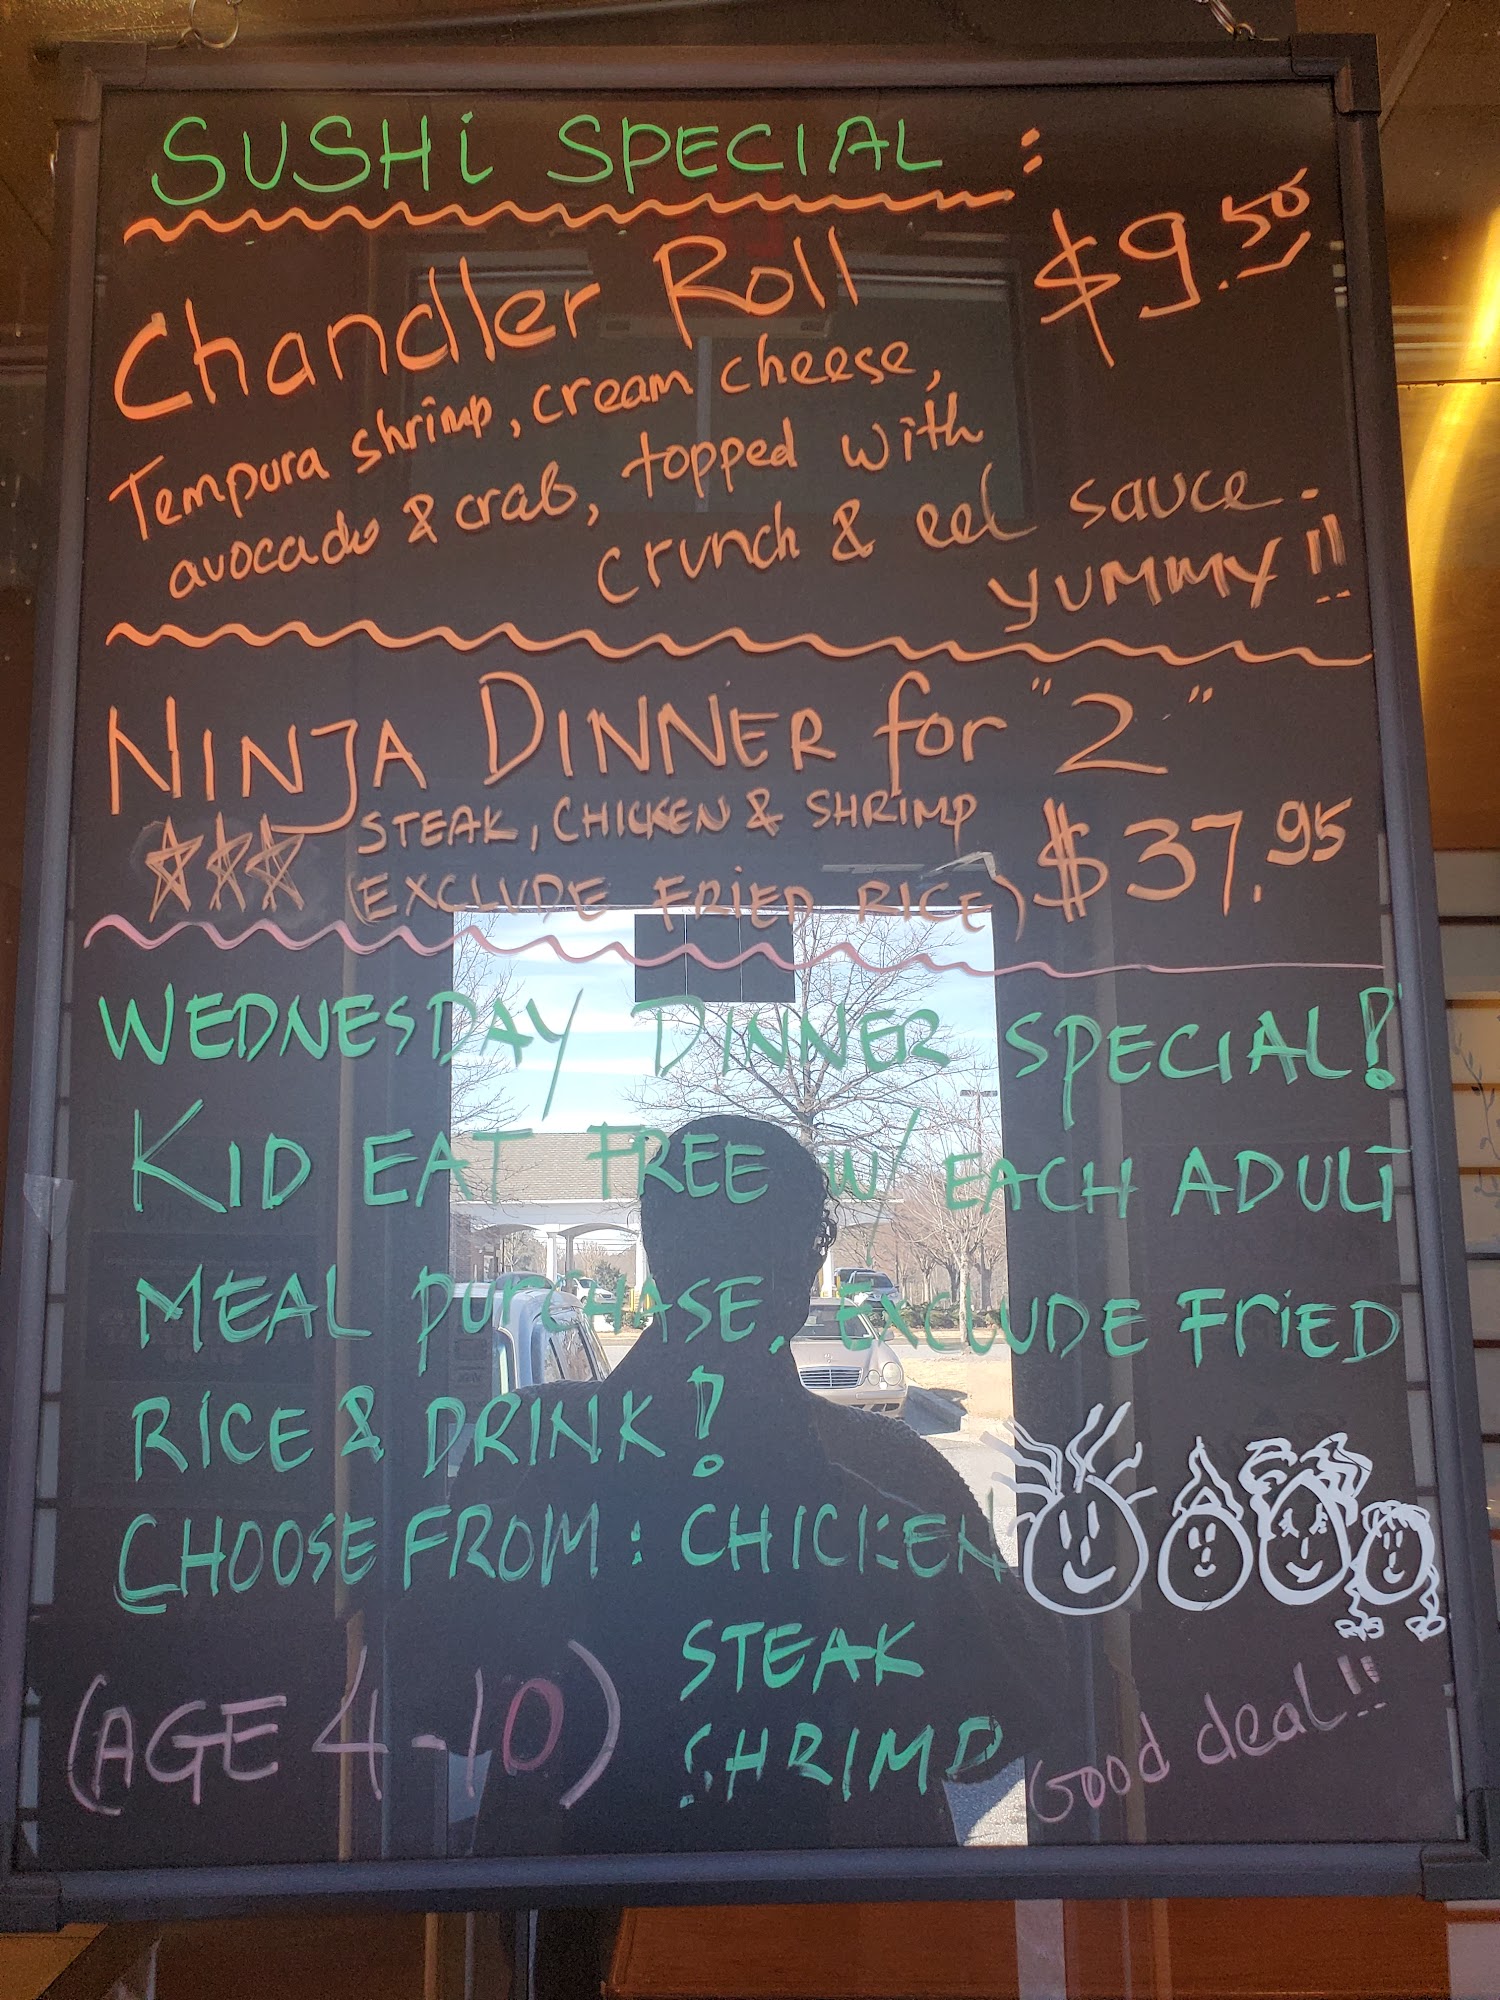 SUSHi SPECIAL :
Chandler Roll $9.50
Tempura shrimp, cream cheese,
avocado & crab, topped with
crunch & eel sauce.
YUMMY!!
NINJA DINNER for "2"
STEAK, CHICKEN & SHRIMP
(EXCLUDE FRIED RICE) $37.95
WEDNESDAY DINNER SPECIAL!
KID EAT FREE W/ EACH ADULT
MEAL PURCHASE. EXCLUDE FriED
RiCE & DRINK!
CHOOSE FROM: CHICKEN
STEAK
SHRIMP
(AGE 4-10)
Good deal!!